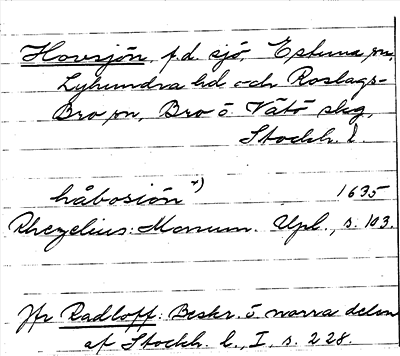 Hovsjön, f.d. sjö, Estuna sn,
Lyhundra hd och Roslags-
Bro sn, Bro o. Vätö skg,
Stockh. l.
håbosiön +) 1635
Rhezelius: Monum. Upl., s. 103.
Jfr Radloff: Beskr. ö norra delen
af Stockh. l., I, s. 228.